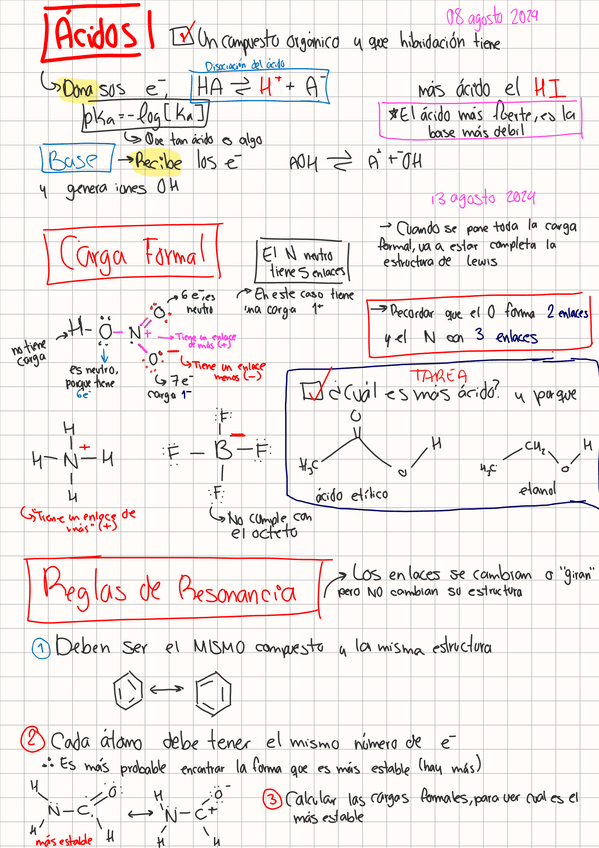 08 agosto 2024
Ácidos
Un compuesto orgánico y que hibridación tiene
Disociación del ácido
Dona sos e⁻,
HA ⇌ H⁺ + A⁻
más ácido el HI
pKa = -log[Ka]
*El ácido más fuerte, es la
base más debil
Que tan ácido es algo
Base → Recibe los e⁻
AOH ⇌ A⁺ + ⁻OH
y genera iones OH
13 agosto 2024
Carga Formal
El N neutro
tiene 5 enlaces
→ Cuando se pone toda la carga
formal, va a estar completa la
estructura de Lewis
En este caso tiene
una carga 1⁺
6 e⁻ es
neutro
→ Recordar que el O forma 2 enlaces
y el N con 3 enlaces
H-O-N+
O
O
Tiene un enlace
de más (+)
no tiene
carga
es neutro,
porque tiene
6e⁻
Tiene un enlace
menos (-)
7 e⁻
carga 1⁻
TAREA
¿Cuál es más ácido? y porque
O
H
H₃C
O
ácido etílico
CH₂
H
H₃C
O
etanol
H
H-N-H
+
H
F
F-B-F
F
Tiene un enlace de
"más" (+)
No cumple con
el octeto
Reglas de Resonancia
→ Los enlaces se cambian o "giran"
pero NO cambian su estructura
① Deben ser el MISMO compuesto y la misma estructura
② Cada átomo debe tener el mismo número de e⁻
∴ Es más probable encontrar la forma que es más estable (hay más)
H
N-C
O
H
H
más estable
H
N-C+
O⁻
H
H
③ Calcular las cargas formales, para ver cual es el
más estable